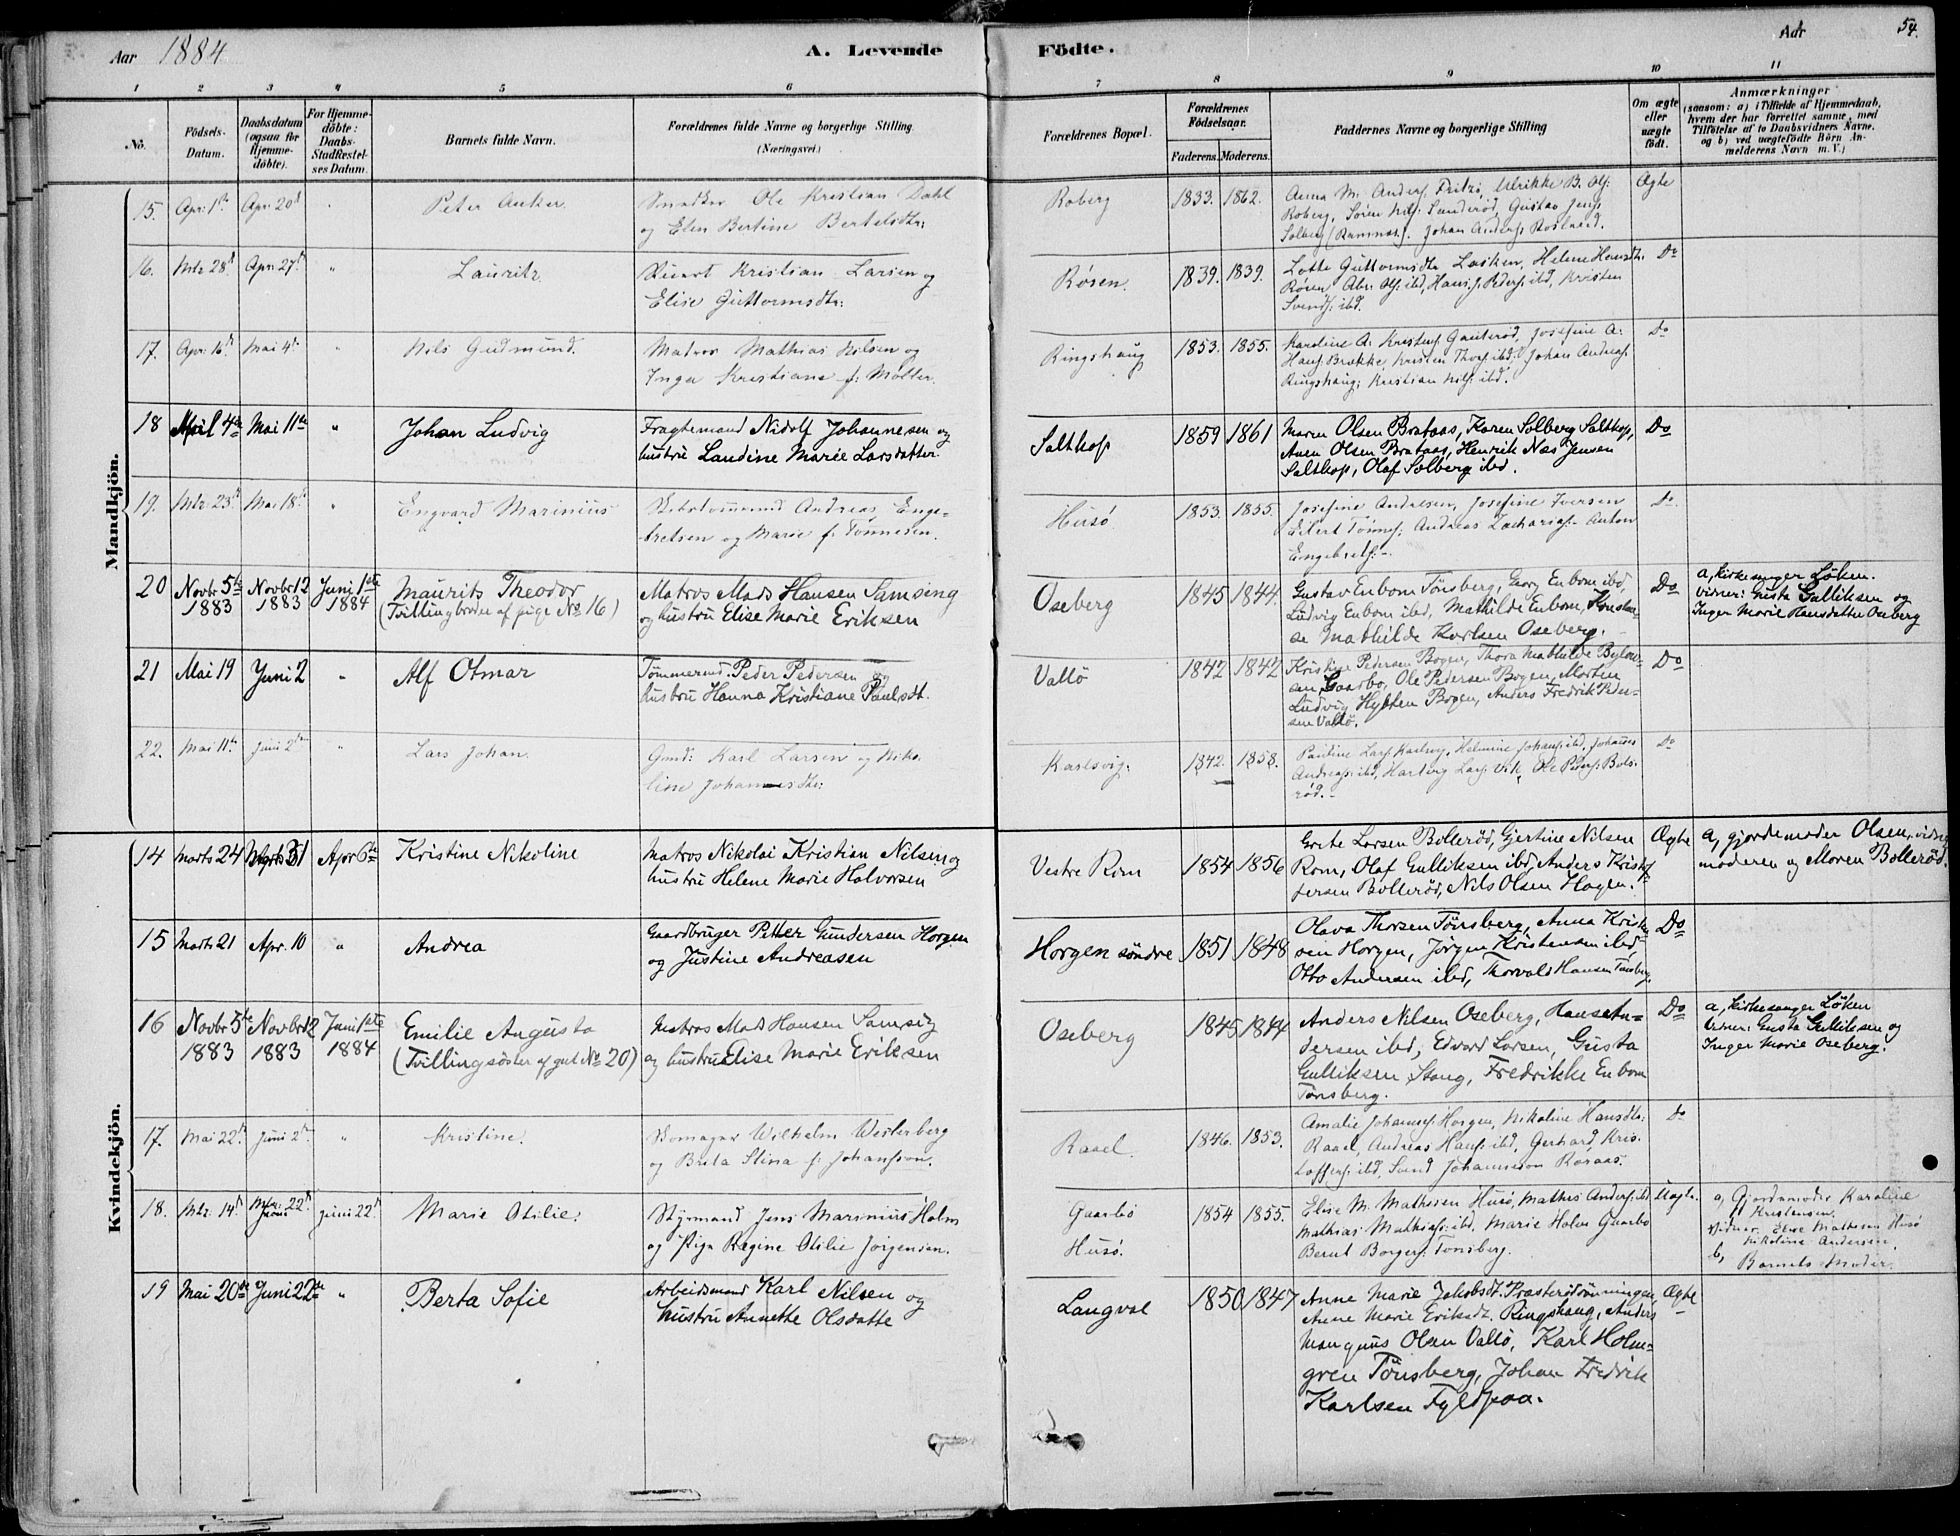 Aar 1884 A. Levende Födte. Aar 54.
1 2 3 4 5 6 7 8 9 10 11
No.
Födsels-Datum.
Daabsdatum (ogsaa for Hjemme-döbte).
For Hjemme-döbte: Daabs-Stadfæstel-ses Datum.
Barnets fulde Navn.
Forældrenes fulde Navne og borgerlige Stilling (Næringsvei)
Forældrenes Bopæl.
Forældrenes Födselsaar.
Faderens. Moderens.
Faddernes Navne og borgerlige Stilling
Om ægte eller uægte födt.
Anmærkninger
(saasom: a) i Tilfælde af Hjemmedaab, hvem der har forrettet samme, med Tilföielse af to Daabsvidners Navne, og b) ved uægtefödte Börn Anmelderens Navn m.V.)
Mandkjön.
15. Apr: 1ste Apr: 20d " Peter Anker. Ole Kristian Dahl
og Elen Bertine Bertelsdtr:
Roberg 1833. 1862. Anna M. Anders: Fritzö, Ulrikke B. Ols:
Roberg, Sören Nils: Sanderöd, Gustav Jens
Solberg (Ramnes). Johan Anders:
Ægte
16. Mts 28d Apr: 27d " Lauritz Kristian Larsen og
Elise Guttormsdtr:
Røsen. 1839. 1839. Lotte Guttormsdtr Helene Hansdtr:
Røsen Abr: Ols: ibd, Hans J. Peders: ibd, Kristen
Svends: ibd.
Do
17. Apr: 16d Mai 4de " Nils Gudmund. Matros Mathias Nilsen og
Inger Kristiane f: Møller.
Ringshaug 1853. 1855. Karoline A. Kristens: Gauteröd, Josefine A:
Hans: Brække, Kristen Thors: ibd: Johan Andreas:
Ringshaug; Kristian Nils: ibd.
Do
18 April 4de Mai 11te " Johan Ludvig Fragtemand Nidolf Johannesen og
hustru Laudine Marie Larsdatter.
Saltkop 1859 1861 Maren Olsen Brataas, Karen Solberg Saltkop,
Anen Olsen Brataas, Henrik Næs Jensen
Saltkop, Olaf Solberg ibd.
Do
19. Mts 23d Mai 18d " Engvard Marinius Andreas Enge=
bretsen og Marie f: Tønnesen.
Husö 1853. 1855. Josefine Andresen, Josefine Iversen
Eilert Tönnes: Andreas Zacharias: - Anton
Engebrets: -
Do
20 Novbr 5te Novbr 12 Juni 1ste Maurits Theodor
1883 1883 1884 (Tvillingbroder af pige No 16)
Matros Mads Hansen Samsing
og hustru Elise Marie Eriksen
Oseberg 1845 1844. Gustav Enbom Tönsberg, Georg Enbom ibd,
Ludvig Enbom ibd, Mathilde Enbom, Konstan-
se Mathilde Karlsen Oseberg.
Do a, Kirkesanger Löken.
vidner: Gusta Gulliksen og
Inger Marie Hansdatter Oseberg
21 Mai 19 Juni 2 " Alf Otmar Tømmermd. Peder Pedersen og
hustru Hanna Kristiane Paulsdt.
Vallö 1842 1842 Kristine Pedersen Bogen, Thora Mathilde
sen Gaarbo, Ole Pedersen Bogen, Morten
Ludvig Bogen, Anders Fredrik Peder-
sen Vallö.
Do
22. Mai 11te Juni 2den " Lars Johan. Gmd: Karl Larsen og Niko-
line Johannesdtr:
Karlsvig. 1842. 1858. Pauline Lars: Karlsvig, Helmine Johans: ibd, Johannes
Andreas: ibd, Hartvig Lars: Vik, Ole Peders: Bols-
röd. -
Do
Kvindekjön.
14 Marts 24 Marts 31 Apr 6te Kristine Nikoline Matros Nikolai Kristian Nilsen og
hustru Helene Marie Halvorsen
Vestre Rom 1854 1856 Grete Larsen Bolleröd, Gjertine Nilsen
Rom, Olaf Gulliksen ibd, Anders Kristof-
fersen Bolleröd, Nils Olsen Hagen.
Ægte a, gjordemoder Olsen, vidner
moderen og Maren Bolleröd.
15 Marts 21 Apr. 10 " Andrea Gaardbruger Petter Gundersen Horgen
og Justine Andreasen
Horgen söndre 1851 1848 Olava Thorsen Tönsberg, Anna Kristen
sen Horgen, Jörgen Kristensen ibd
Otto Andersen ibd, Thorvald Hansen Tönsberg.
Do
16 Novbr 5te Novbr 12 Juni 1ste Emilie Augusta
1883 1883 1884 (Tvillingsöster af gut No 20)
Matros Mads Hansen Samsig
og hustru Elise Marie Eriksen
Oseberg 1845 1844 Anders Nilsen Oseberg, Hans An-
dersen ibd, Edvard Larsen, Gusta
Gulliksen Stang, Fredrikke Enbom
Tönsberg.
Do a, Kirkesanger Löken
vidner: Gusta Gulliksen og
Inger Marie Oseberg.
17. Mai 22d Juni 2d " Kristine. Skomager Wilhelm Westerberg
og Brita Stina f: Johansson.
Raael. 1846. 1853. Amalie Johannes: Horgen, Nikoline Hansdtr:
Raael, Andreas Hans: ibd, Gerhard Kris-
toffers: ibd. Svend Johannesson Röraas.
Do
18. Mts: 14d Mts: 22d Juni Juni 22d Marie Otilie. Styrmand Jens Marinius Holm
og Pige Regine Otilie Jörgensen.
Gaarbö
Husö. 1854 1855. Elise M. Mathesen Husö, Mathis Anders: ibd
Mathias Mathias: ibd. Marie Holm Gaarbo
Bernt Borger: Tönsberg.
Uægte. a, Gjordemoder Karoline
Kristensen.
Vidner, Elise Mathesen Husö
Nikoline Andersen.
b, Barnets Moder.
19 Mai 20de Juni 22de " Berta Sofie Arbeidsmand Karl Nilsen og
hustru Annette Olsdatte
Langvol 1850 1847 Anne Marie Jakobsdt. Præsterödrönningen,
Anne Marie Eriksdt. Ringshaug, Anders
Mangnus Olsen Vallö, Karl Holm-
gren Tönsberg, Johan Fredrik
Karlsen Fyldpaa.
Ægte